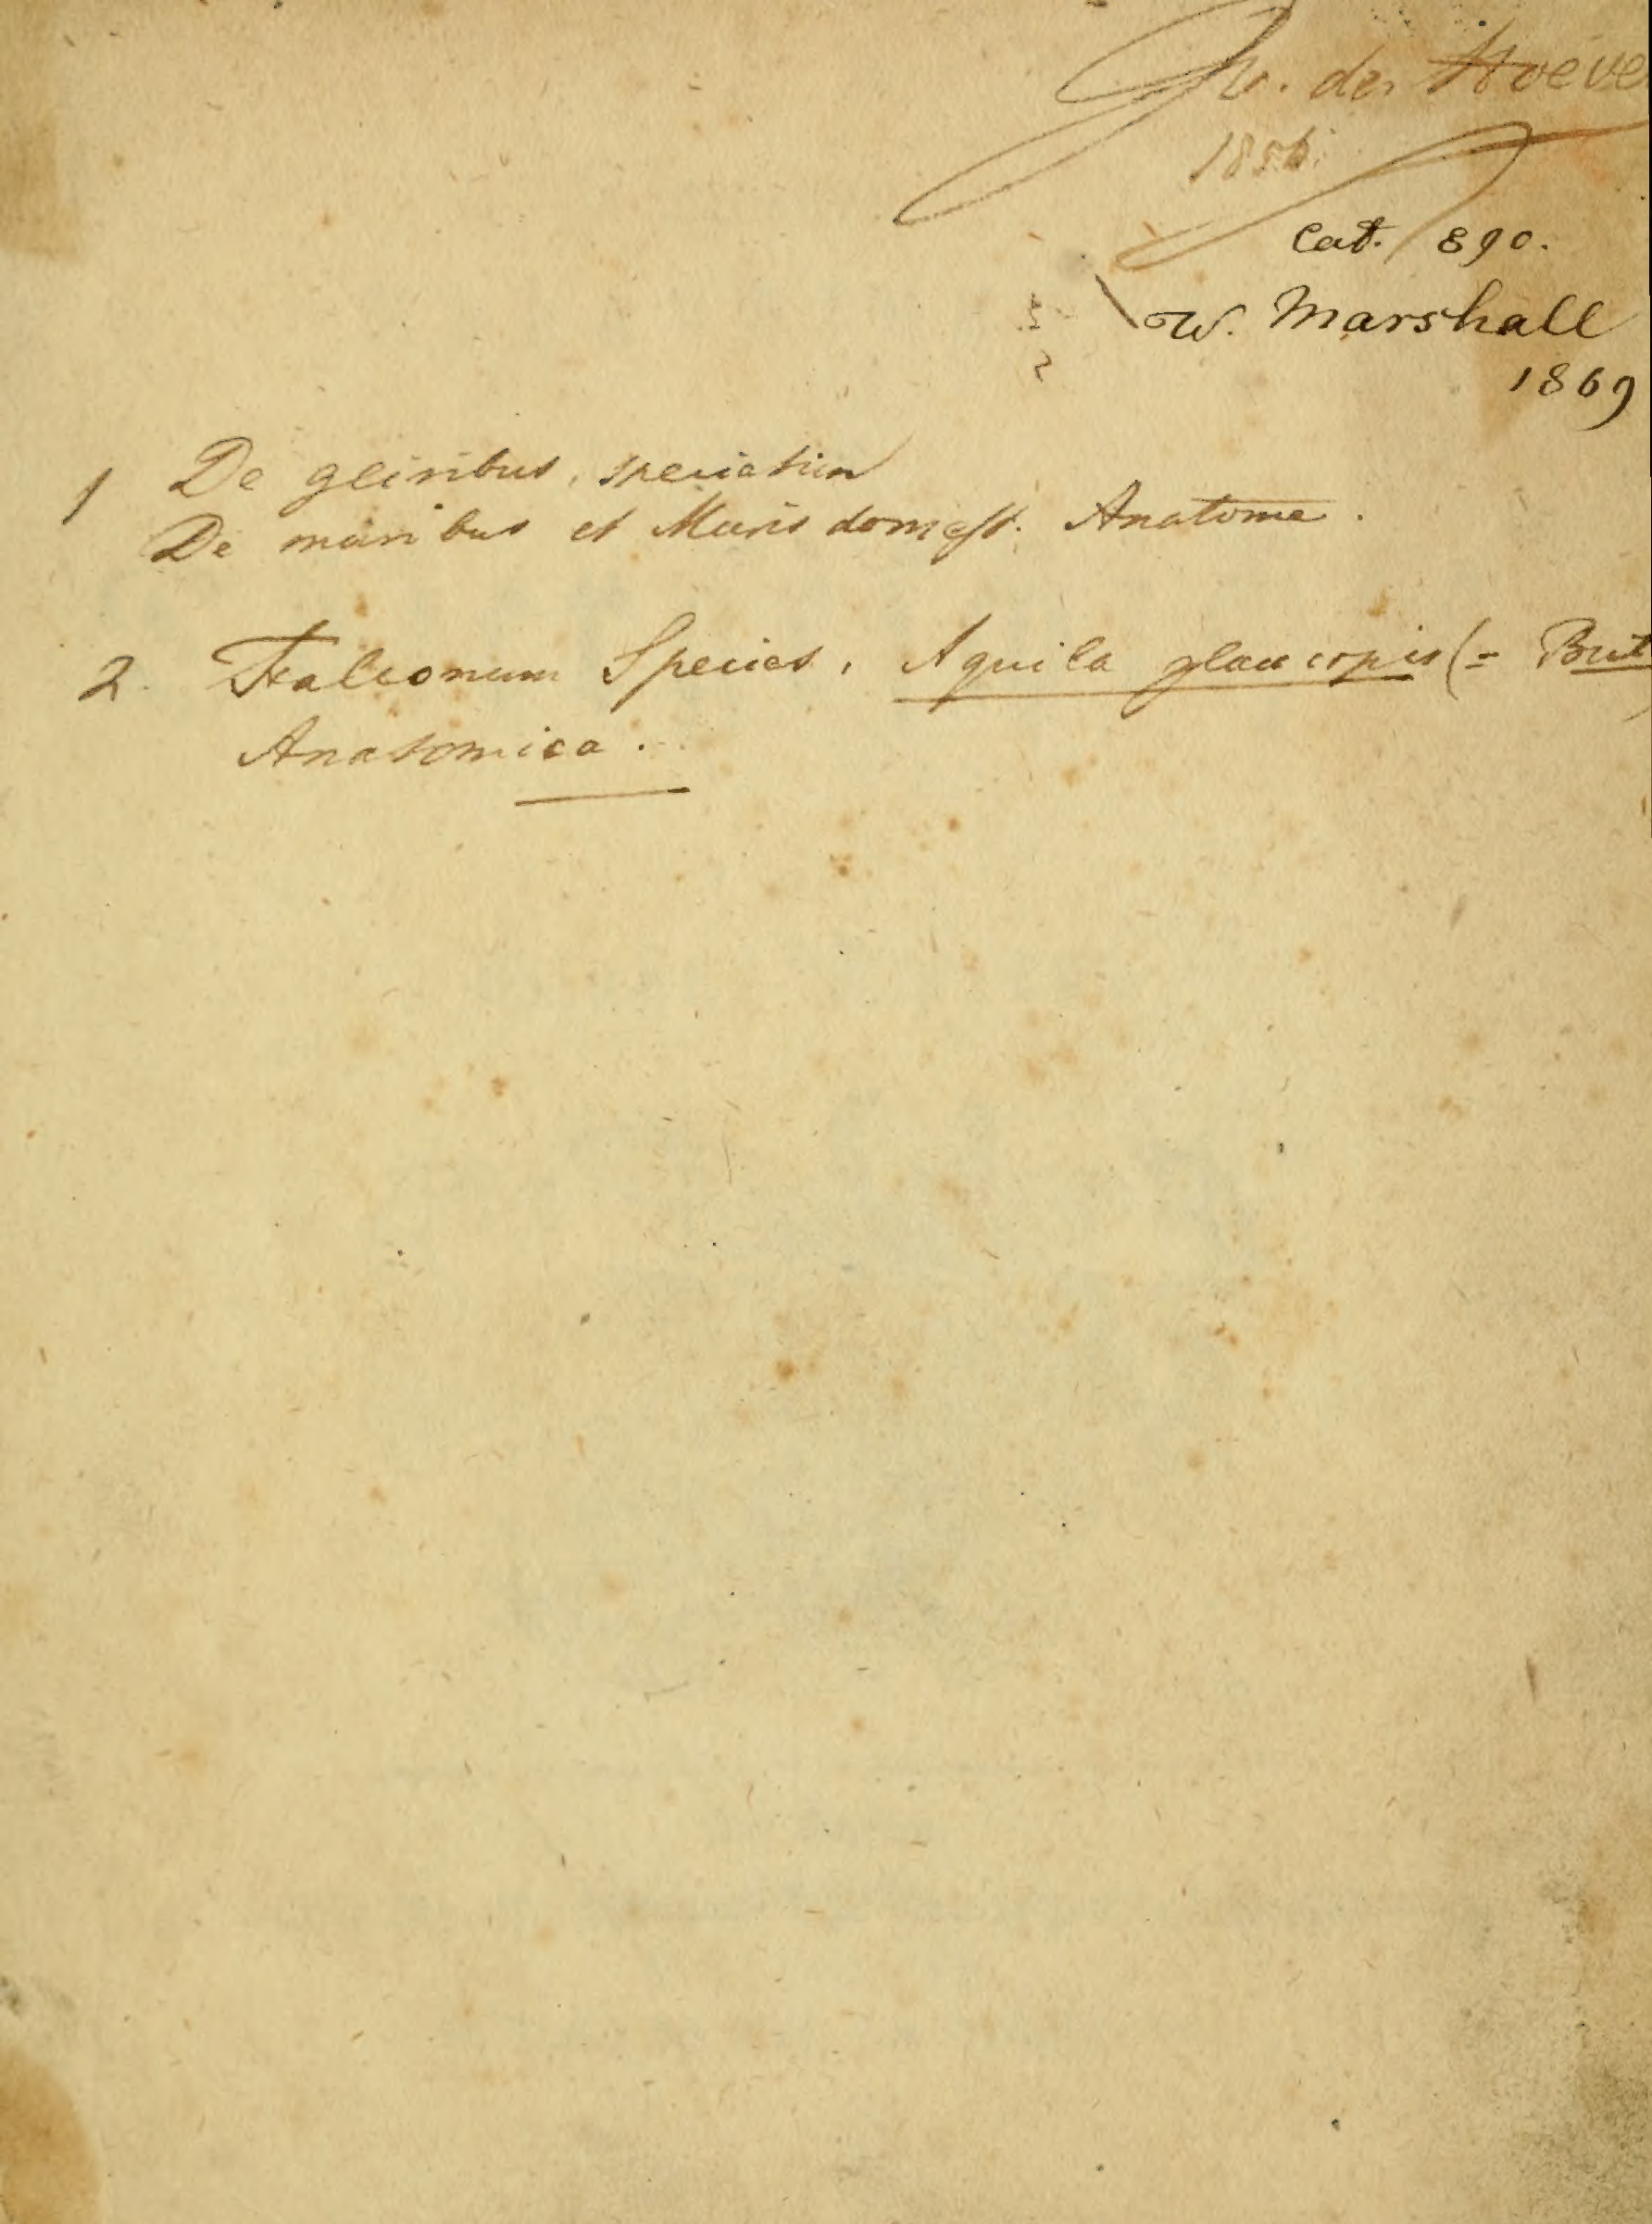 v. der Hoeve
1856.
Cat. 890.
W. Marshall
1869
1 De gliribus, speciatim
De muribus et Muris domest. Anatome.
2. Falconum Species, Aquila glaucopis (= But
Anatomica.